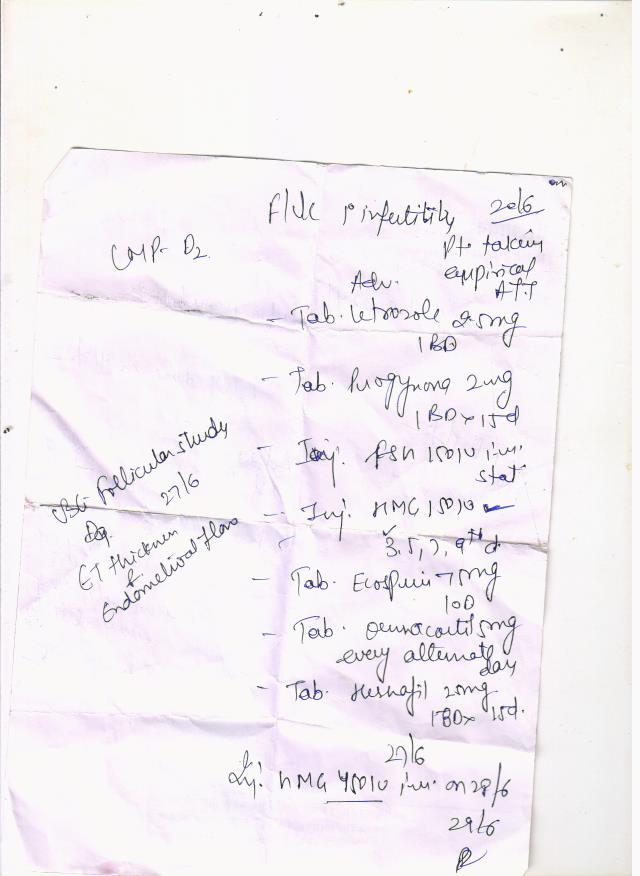 F/U/C 1° infertility 20/6
LMP- D2
Pt. taking
empirical
ATT
Adv.
- Tab. Letrozole 2.5mg
1 BD
- Tab. Progynova 2mg
1 BD x 15d
- Inj. FSH 150IU i.m.
stat
- Inj. HMG 150IU
3, 5, 7, 9th d.
- Tab. Ecosprin 75mg
1 OD
- Tab. 5mg
every alternate
day
- Tab. 25mg
1 BD x 15d.
Follicular study
D9. 27/6
ET thickness
&
Endometrial flow
27/6
Inj. HMG 450IU i.m. on 28/6
29/6